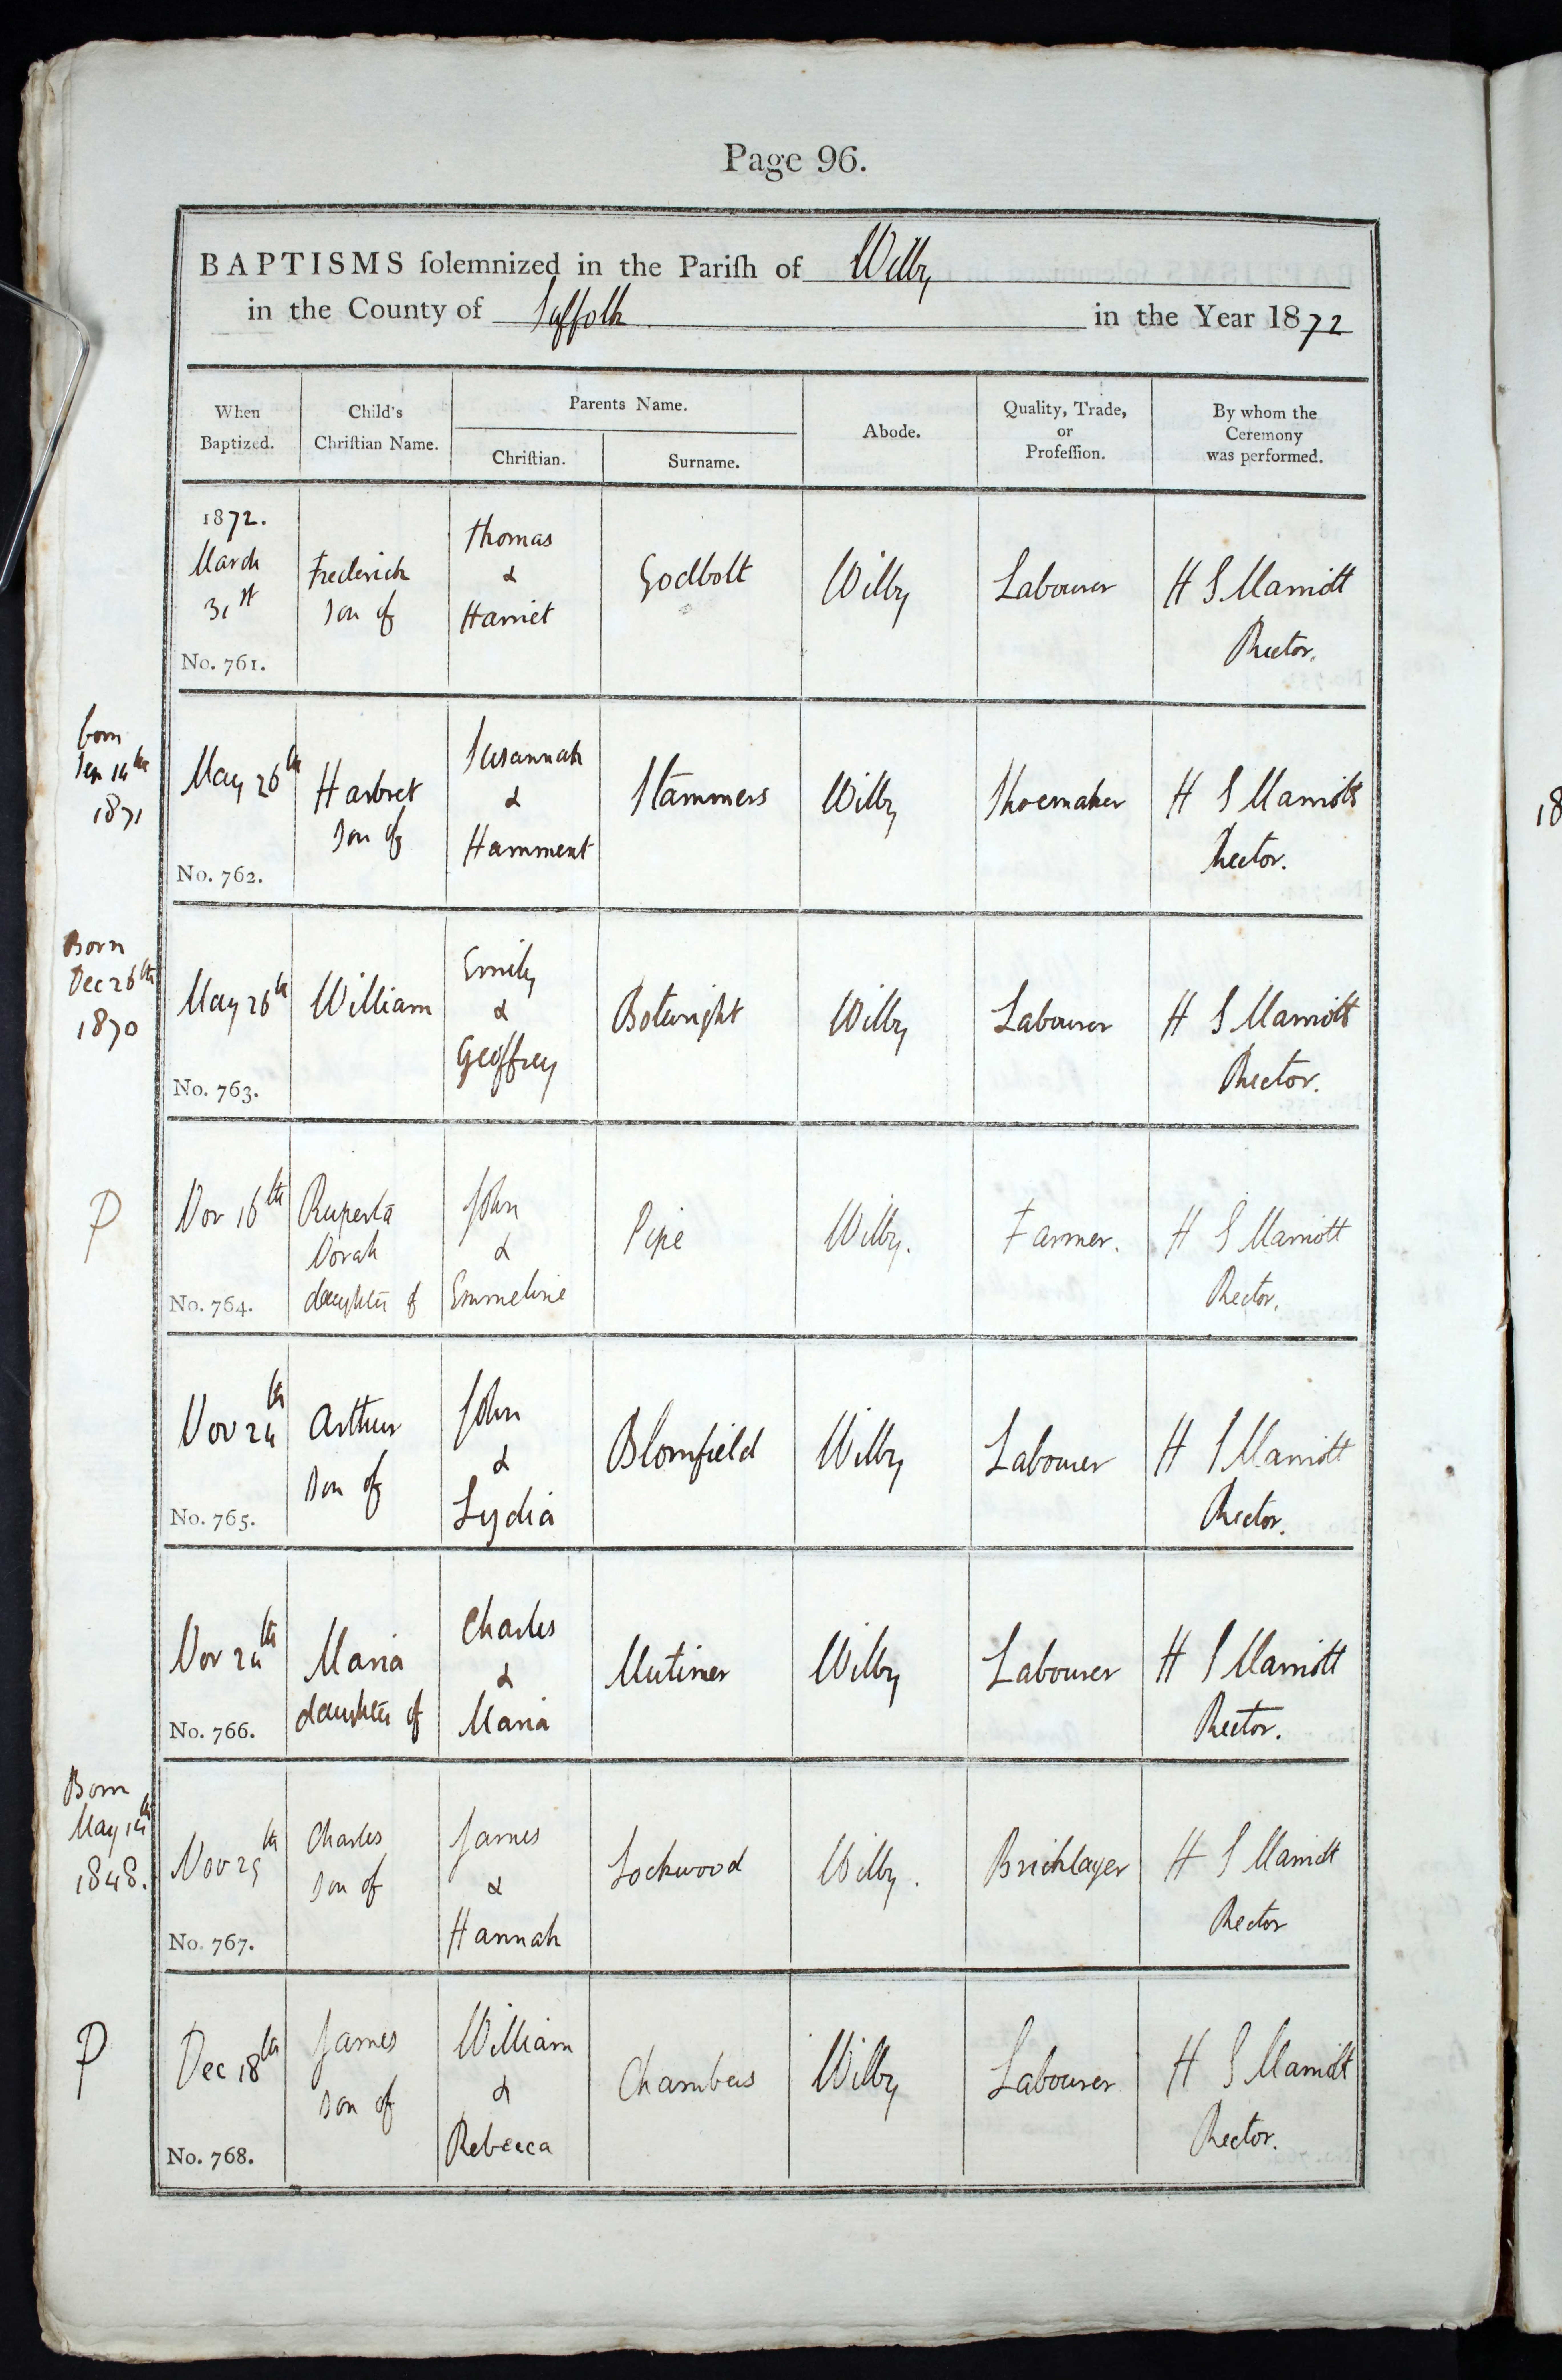 Page 96.
BAPTISMS ſolemnized in the Pariſh of Wilby
in the County of Suffolk in the Year 1872
When
Baptized.
Child's
Chriſtian Name.
Parents Name.
Chriſtian.
Surname.
Abode.
Quality, Trade,
or
Profeſſion.
By whom the
Ceremony
was performed.
1872.
March
31st
No. 761.
Frederick
Son of
Thomas
&
Harriet
Godbolt
Wilby
Labourer
H S Marriott
Rector.
born
Sep 14th
1871
May 26th
No. 762.
Harbret
Son of
Susannah
&
Hamment
Stammers
Wilby
Shoemaker
H S Marriott
Rector.
Born
Dec 26th
1870
May 26th
No. 763.
William
Emily
&
Geoffrey
Botwright
Wilby
Labourer
H S Marriott
Rector.
P
Nov 16th
No. 764.
Ruperta
Norah
daughter of
John
&
Emmeline
Pipe
Wilby.
Farmer.
H S Marriott
Rector.
Nov 24th
No. 765.
Arthur
Son of
John
&
Lydia
Blomfield
Wilby
Labourer
H S Marriott
Rector.
Nov 24th
No. 766.
Maria
daughter of
Charles
&
Maria
Mutimer
Wilby
Labourer
H S Marriott
Rector.
Born
May 14th
1848.
Nov 25th
No. 767.
Charles
Son of
James
&
Hannah
Lockwood
Wilby.
Bricklayer
H S Marriott
Rector
P
Dec 18th
No. 768.
James
Son of
William
&
Rebecca
Chambers
Wilby
Labourer
H S Marriott
Rector.
18